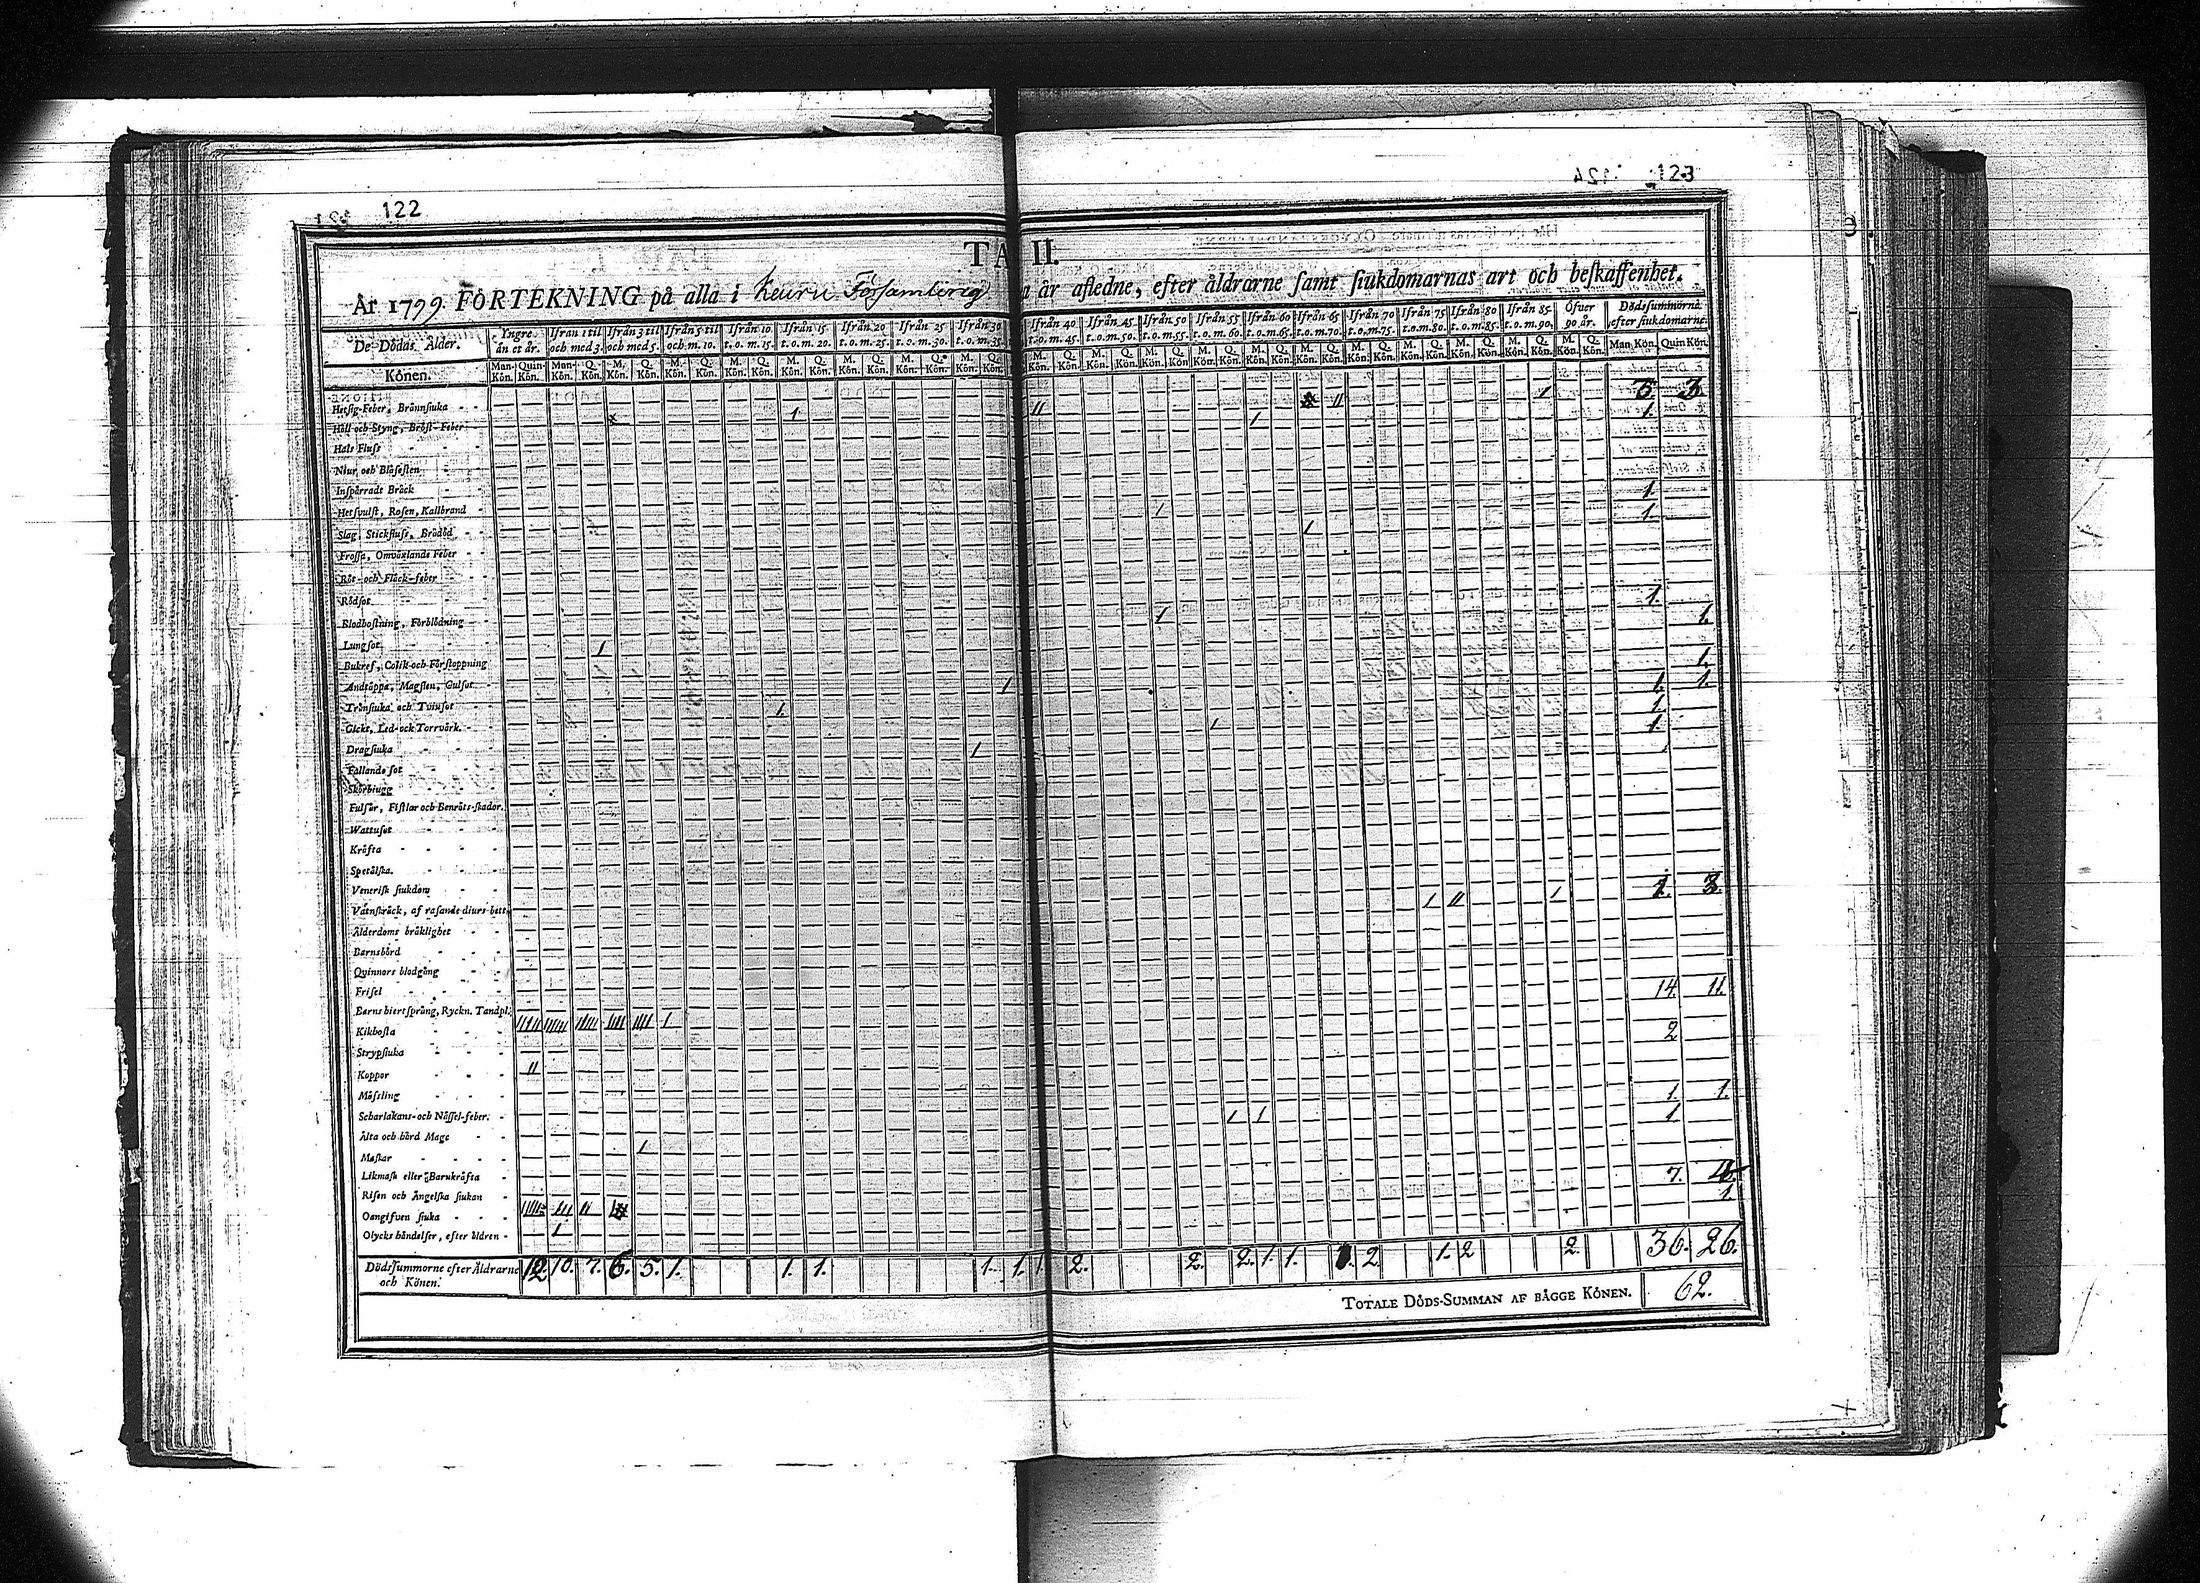 122
123
TA II.
År 1799. FÖRTEKNING på alla i Keuru Församling
a år afledne, efter åldrarne samt siukdomarnas art och beskaffenhet.
De Dödas Ålder.
Yngre än et år.
Ifrån 1 til och med 3.
Ifrån 3 til och med 5.
Ifrån 5 til och m. 10.
Ifrån 10. t. o. m. 15.
Ifrån 15. t. o. m. 20.
Ifrån 20 t. o. m. 25.
Ifrån 25 t. o. m. 30.
Ifrån 30 t. o. m. 35.
Ifrån 40 t. o. m. 45.
Ifrån 45 t. o. m. 50.
Ifrån 50 t. o. m. 55.
Ifrån 55 t. o. m. 60.
Ifrån 60 t. o. m. 65.
Ifrån 65 t. o. m. 70.
Ifrån 70 t. o. m. 75.
Ifrån 75 t. o. m. 80.
Ifrån 80 t. o. m. 85.
Ifrån 85. t. o. m. 90.
Öfver 90 år.
Dödssummorne efter siukdomarne.
Könen.
Man-Kön. Quin-Kön. Man-Kön. Q. Kön. M. Kön. Q. Kön. M. Kön. Q. Kön.
Man Kön. Quin Kön.
Hetsig-Feber, Brännsiuka 3.
Håll och Styng, Bröst-Feber 1.
Hals Fluss
Niur och Blåsesten
Inspärradt Bråck
Hetsvulst, Rosen, Kallbrand 1.
Slag, Stickfluss, Brådöd 1.
Frossa, Omväxlande Feber
Röt- och Fläck-feber
Rödsot
Blodhostning, Förblödning 1.
Lungsot 1.
Bukref, Colik och Förstoppning
Andtäppa, Magsten, Gulsot 1.
Trånsiuka och Tvinsot 1. 1.
Gickt, Led- och Torrvärk 1.
Dragsiuka 1.
Fallande sot
Skörbiugg
Fulsår, Fistlar och Benröts-skador.
Wattusot
Kräfta
Spetälska.
Venerisk siukdom
Vatnskräck, af rasande diurs bett 3.
Ålderdoms bräklighet
Barnsbörd
Qvinnors blodgång
Frisel
Barns hiertsprång, Ryckn. Tandpl. 14. 11.
Kikhosta
Strypsiuka 2
Koppor
Mässling
Scharlakans- och Nässel-feber. 1. 1.
Älta och hård Mage 1.
Maskar
Likmask eller Barnkräfta
Risen och Ängelska siukan
Oangifven siuka 7.
Olycks händelser, efter åldren 1.
Dödssummorne efter Åldrarne och Könen. 12 10. 7. 6. 5. 1. 1. 1. 1. 1. 1. 2. 2. 2. 1. 1. 2. 1. 2 2. 36. 26.
TOTALE DÖDS-SUMMAN AF BÅGGE KÖNEN. 62.